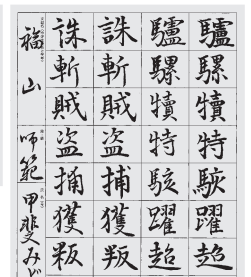 驢騾犢特駭躍超
驢騾犢特駭躍超
誅斬賊盜捕獲叛
誅斬賊盜捕獲叛
福山師範甲斐みど